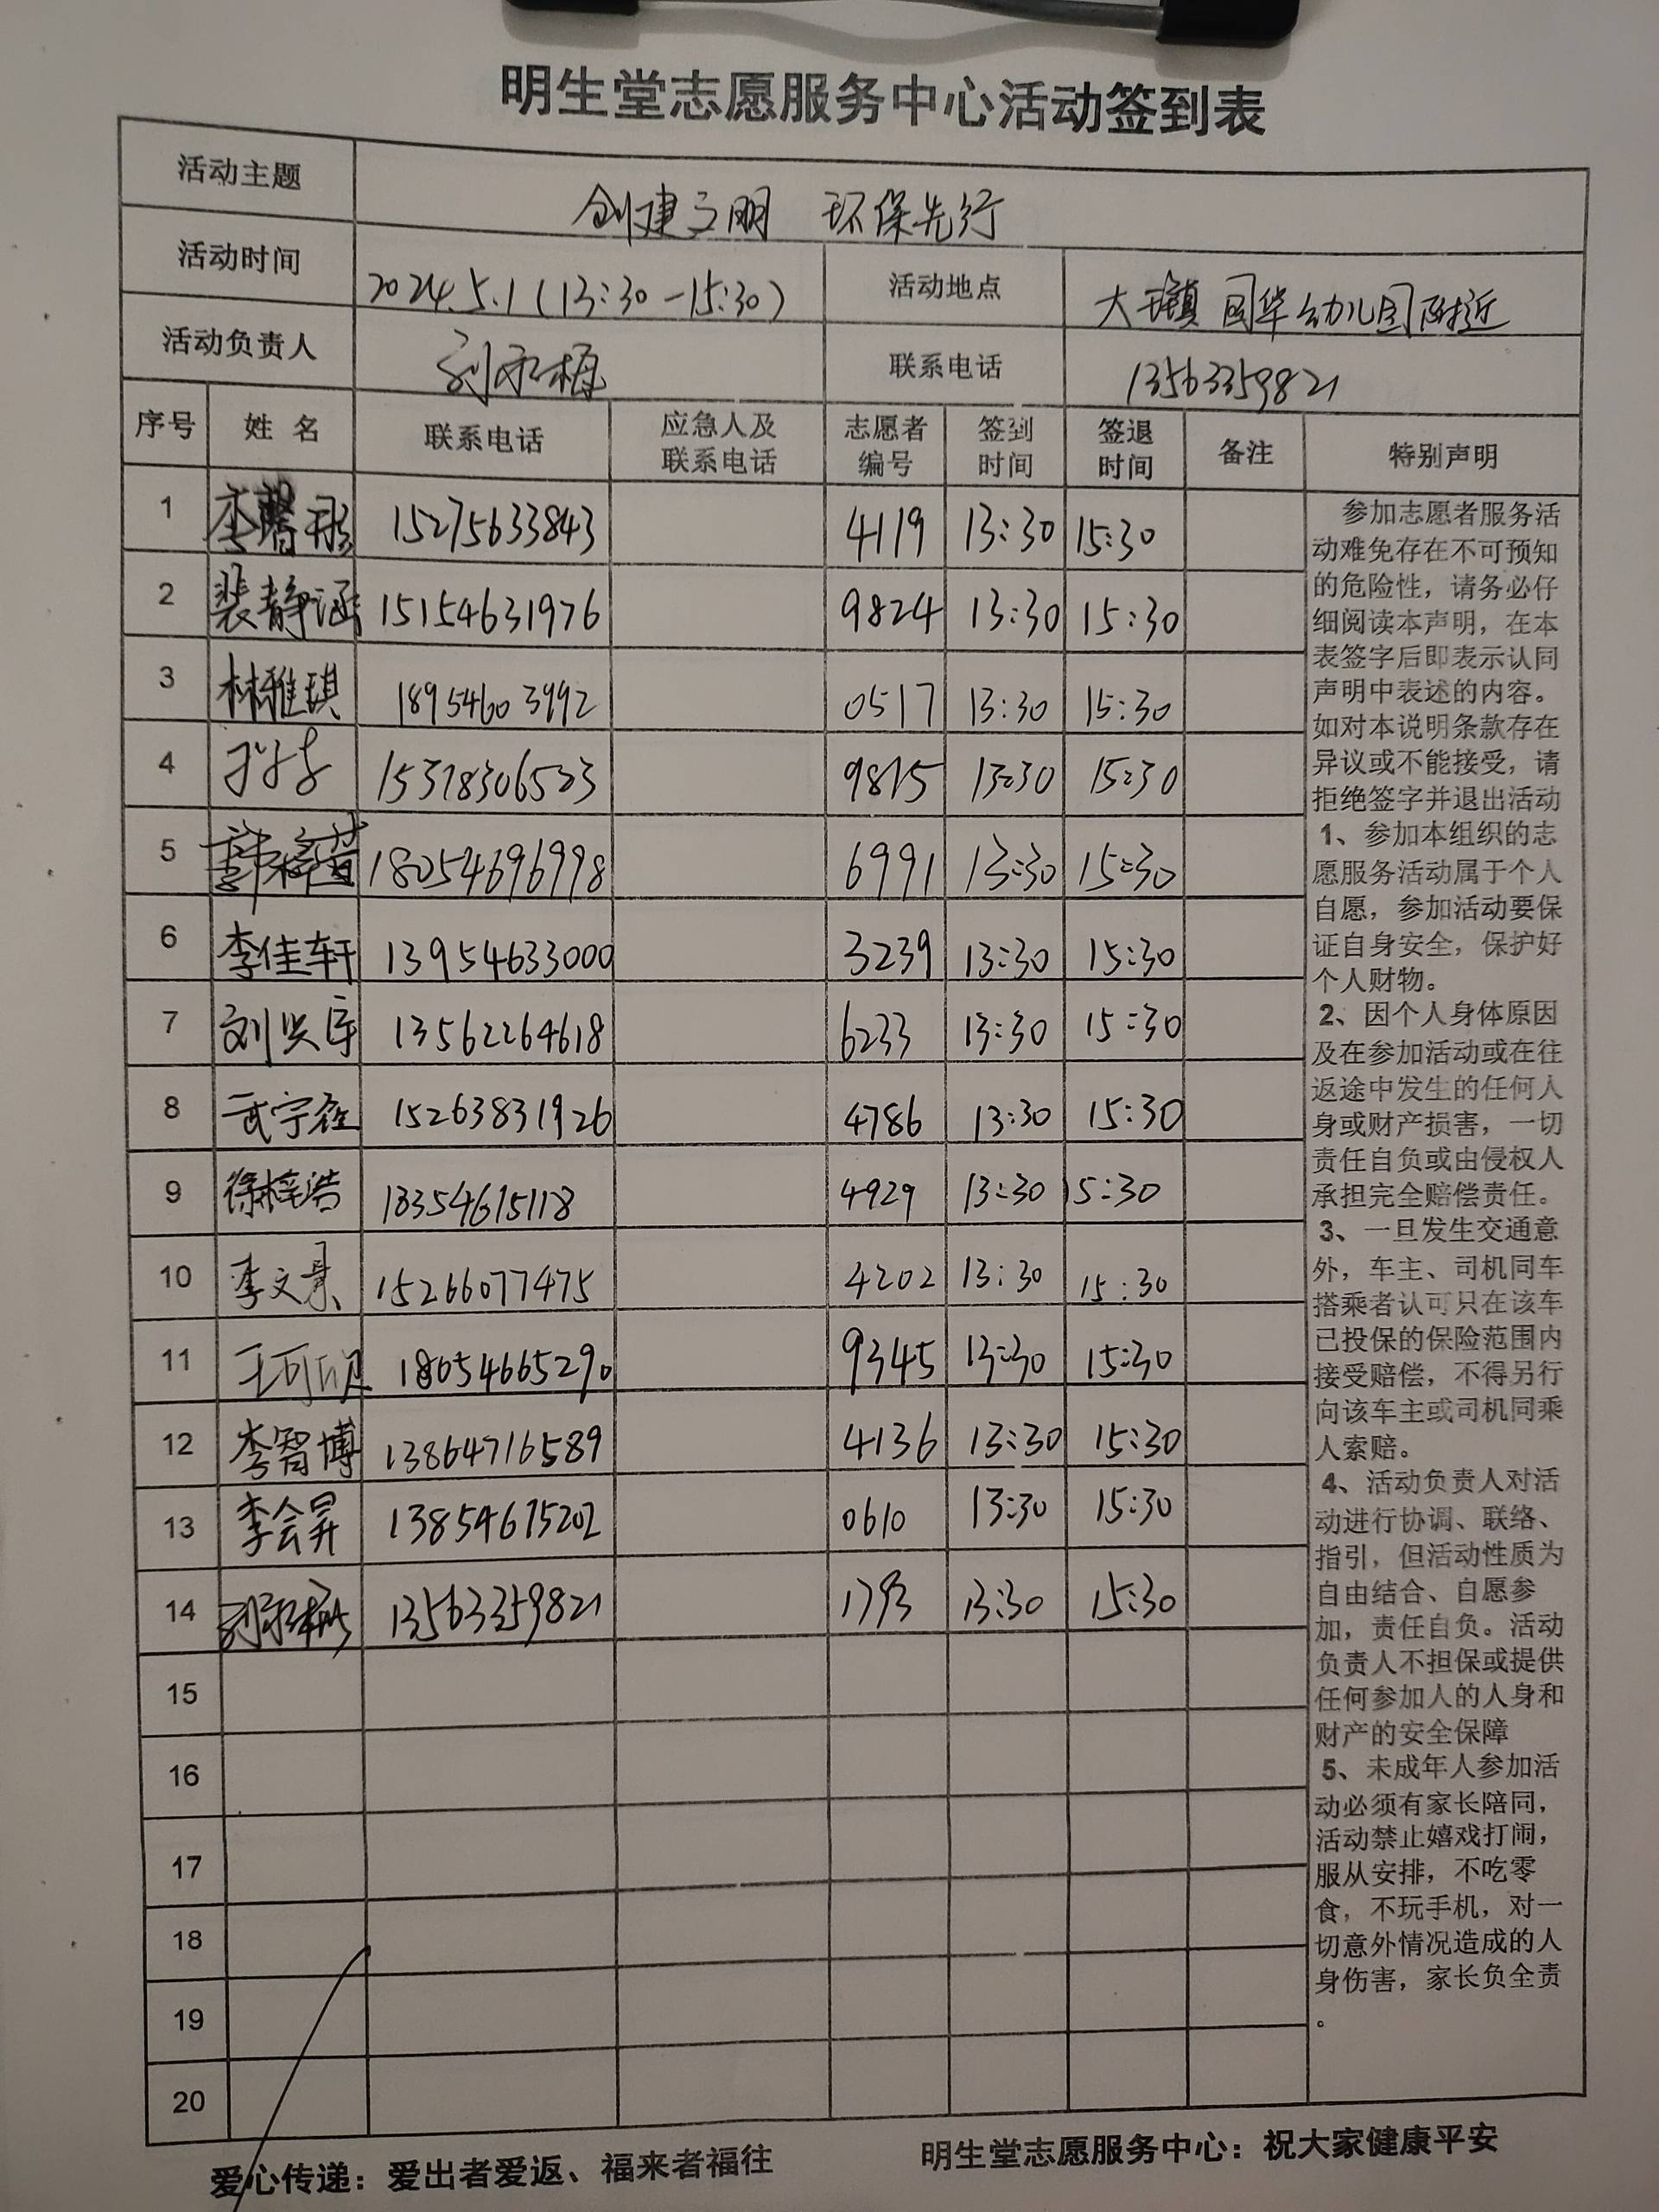 明生堂志愿服务中心活动签到表
活动主题 创建文明 环保先行
活动时间 2024.5.1(13:30-15:30) 活动地点 大王镇 国华幼儿园附近
活动负责人 刘永梅 联系电话 13563359821
序号 姓名 联系电话 应急人及联系电话 志愿者编号 签到时间 签退时间 备注 特别声明
1 李馨彤 15275633843 4119 13:30 15:30
2 裴静涵 15154631976 9824 13:30 15:30
3 林雅琪 18954603992 0517 13:30 15:30
4 15378306523 9815 13:30 15:30
5 韩梓萱 18054696998 6991 13:30 15:30
6 李佳轩 13954633000 3239 13:30 15:30
7 刘兴宇 13562264618 6233 13:30 15:30
8 武宇 15263831926 4786 13:30 15:30
9 徐梓浩 18354615118 4929 13:30 15:30
10 李文景 15266077475 4202 13:30 15:30
11 王可欣 18054665290 9345 13:30 15:30
12 李智博 13864716589 4136 13:30 15:30
13 李会昇 13854675202 0610 13:30 15:30
14 刘永梅 13563359821 1793 13:30 15:30
15
16
17
18
19
20
参加志愿者服务活
动难免存在不可预知
的危险性，请务必仔
细阅读本声明，在本
表签字后即表示认同
声明中表述的内容。
如对本说明条款存在
异议或不能接受，请
拒绝签字并退出活动
1、参加本组织的志
愿服务活动属于个人
自愿，参加活动要保
证自身安全，保护好
个人财物。
2、因个人身体原因
及在参加活动或在往
返途中发生的任何人
身或财产损害，一切
责任自负或由侵权人
承担完全赔偿责任。
3、一旦发生交通意
外，车主、司机同车
搭乘者认可只在该车
已投保的保险范围内
接受赔偿，不得另行
向该车主或司机同乘
人索赔。
4、活动负责人对活
动进行协调、联络、
指引，但活动性质为
自由结合、自愿参
加，责任自负。活动
负责人不担保或提供
任何参加人的人身和
财产的安全保障
5、未成年人参加活
动必须有家长陪同，
活动禁止嬉戏打闹，
服从安排，不吃零
食，不玩手机，对一
切意外情况造成的人
身伤害，家长负全责
。
爱心传递：爱出者爱返、福来者福往 明生堂志愿服务中心：祝大家健康平安